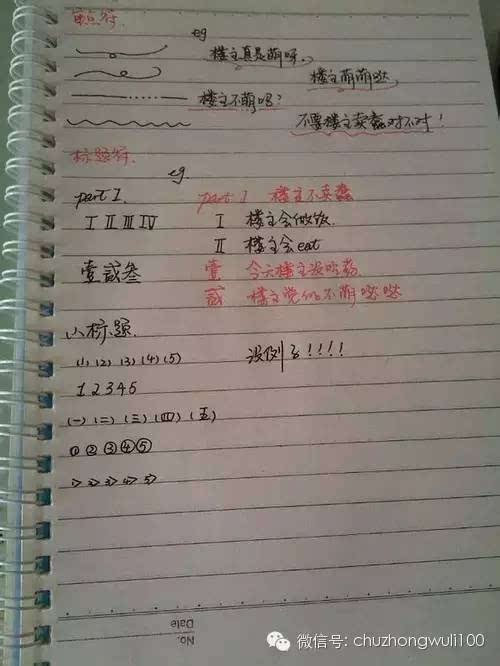 重点符
eg
楼主真是萌呀.
楼主萌萌哒
楼主不萌吗?
不要楼主卖蠢对不对!
标题符.
eg.
part I. part I 楼主不卖蠢
I II III IV I 楼主会做饭.
II 楼主会eat
壹贰叁 壹 今天楼主没吃药
贰 楼主觉的不萌哒哒
小标题.
(1) (2) (3) (4) (5) 没例了!!!!
1 2 3 4 5
(一) (二) (三) (四) (五)
① ② ③ ④ ⑤
1> 2> 3> 4> 5>
No.
Date
微信号: chuzhongwuli100